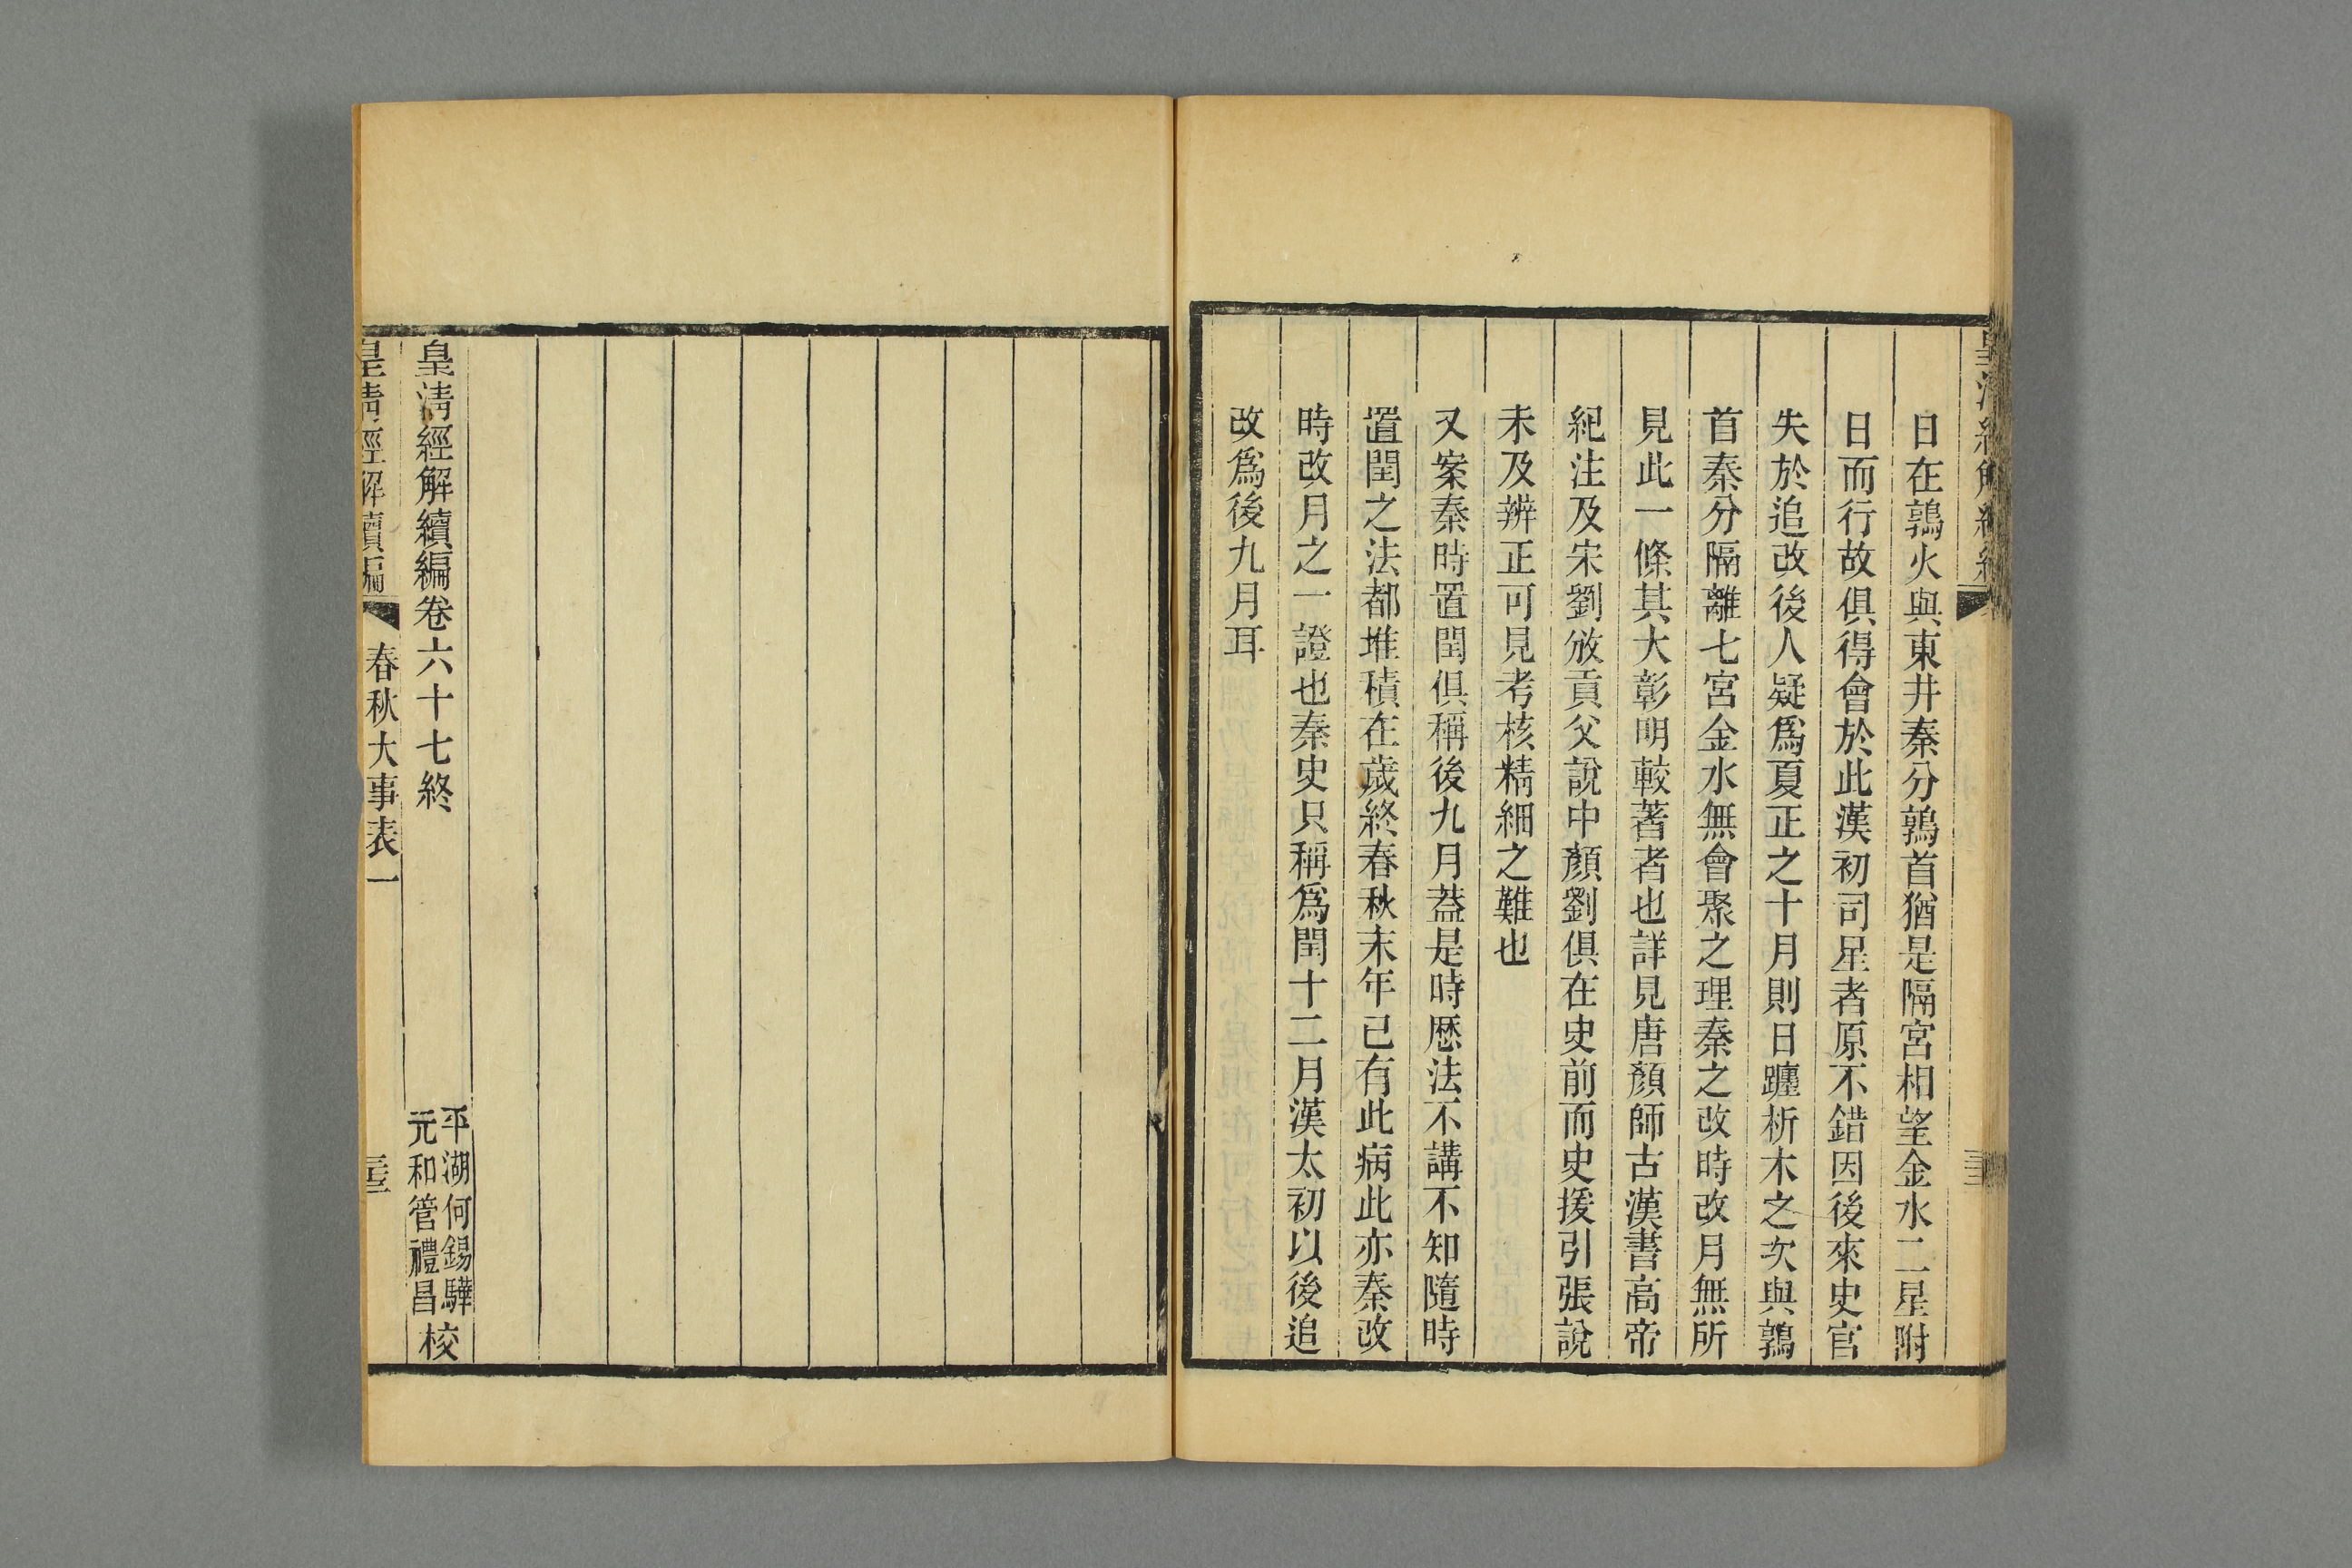 皇淸經解續編
日在鶉火與東井秦分鶉首猶是隔宮相望金水二星附
日而行故俱得會於此漢初司星者原不錯因後來史官
失於追改後人疑爲夏正之十月則日躔析木之次與鶉
首秦分隔離七宮金水無會聚之理秦之改時改月無所
見此一條其大彰明較著者也詳見唐顏師古漢書高帝
紀注及宋劉攽貢父說中顏劉俱在史前而史援引張說
未及辨正可見考核精細之難也
又案秦時置閏俱稱後九月蓋是時厯法不講不知隨時
置閏之法都堆積在歲終春秋末年已有此病此亦秦改
時改月之一證也秦史只稱爲閏十二月漢太初以後追
改爲後九月耳
皇淸經解續編卷六十七終
平湖何錫驊
元和管禮昌
校
皇淸經解續編
春秋大事表一